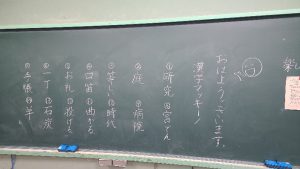 楽し
おはようございます。
漢字マッキーノ
①研究 ⑧宮でん
②庭 ⑨病院
③ ⑩時代
④口笛 ⑪曲がる
⑤お礼 ⑫投げる
⑥一丁 ⑬石炭
⑦手帳 ⑭羊